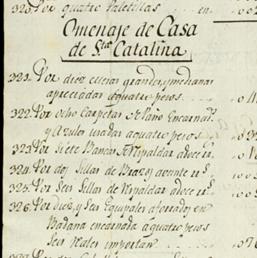 320. Por quatro Paletillas .. en
Omenaje de Casa
de Sta. Catalina
321. Por diez cueras grandes, y medianas
apreciadas a quatro pesos
322. Por ocho Carpetas de Paño Encarnado
y Azules usadas a quatro pesos
323. Por siete Bancas de Respaldar a doce rs.
324. Por dos Sillas de Brazos a veinte rs.
325. Por seis Sillas de Respaldar a doce rs.
326. Por diez, y seis Equipales aforrados en
Badana encarnada a quatro pesos
seis reales importan